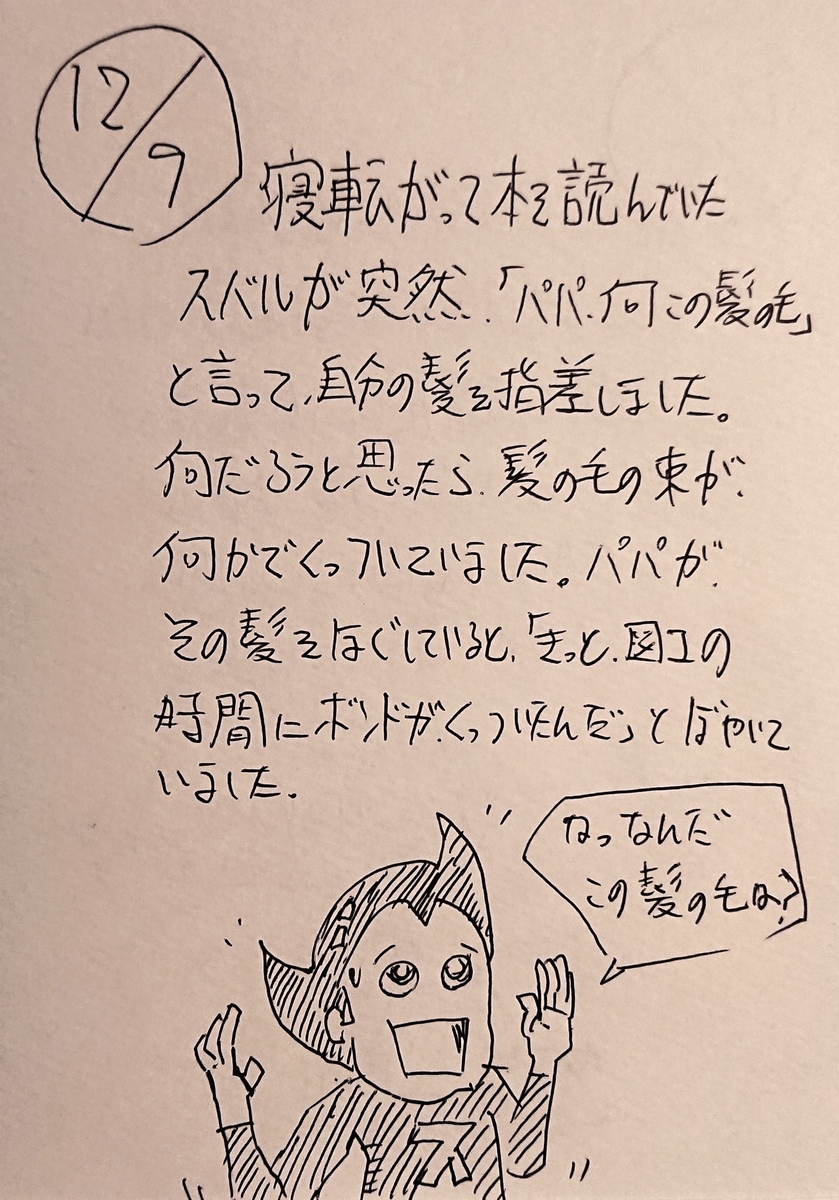 12/9
寝転がって本を読んでいた
スバルが突然、「パパ、何この髪の毛」
と言って、自分の髪を指差しました。
何だろうと思ったら、髪の毛の束が、
何かでくっついていました。パパが、
その髪をほぐしていると、「きっと、図工の
時間にボンドが、くっついたんだ」とぼやいて
いました。
なっなんだ
この髪の毛は?
ス